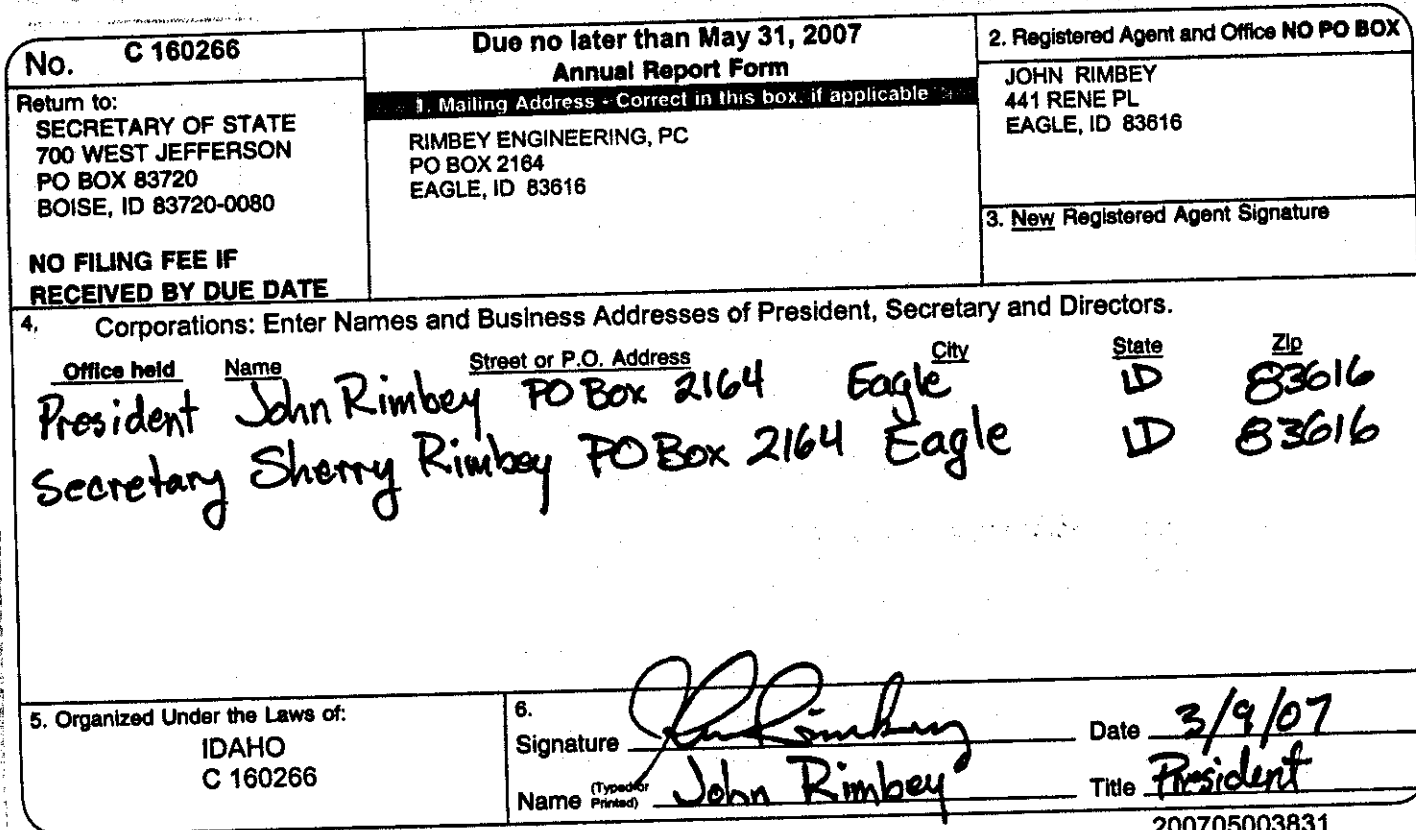 No. C 160266
Return to:
SECRETARY OF STATE
700 WEST JEFFERSON
PO BOX 83720
BOISE, ID 83720-0080
NO FILING FEE IF
RECEIVED BY DUE DATE
Due no later than May 31, 2007
Annual Report Form
1. Mailing Address - Correct in this box, if applicable
RIMBEY ENGINEERING, PC
PO BOX 2164
EAGLE, ID 83616
2. Registered Agent and Office NO PO BOX
JOHN RIMBEY
441 RENE PL
EAGLE, ID 83616
3. New Registered Agent Signature
4. Corporations: Enter Names and Business Addresses of President, Secretary and Directors.
Office held Name Street or P.O. Address City State Zip
President John Rimbey PO Box 2164 Eagle ID 83616
Secretary Sherry Rimbey PO Box 2164 Eagle ID 83616
5. Organized Under the Laws of:
IDAHO
C 160266
6.
Signature John Rimbey Date 3/9/07
Name (Typed or Printed) John Rimbey Title President
200705003831